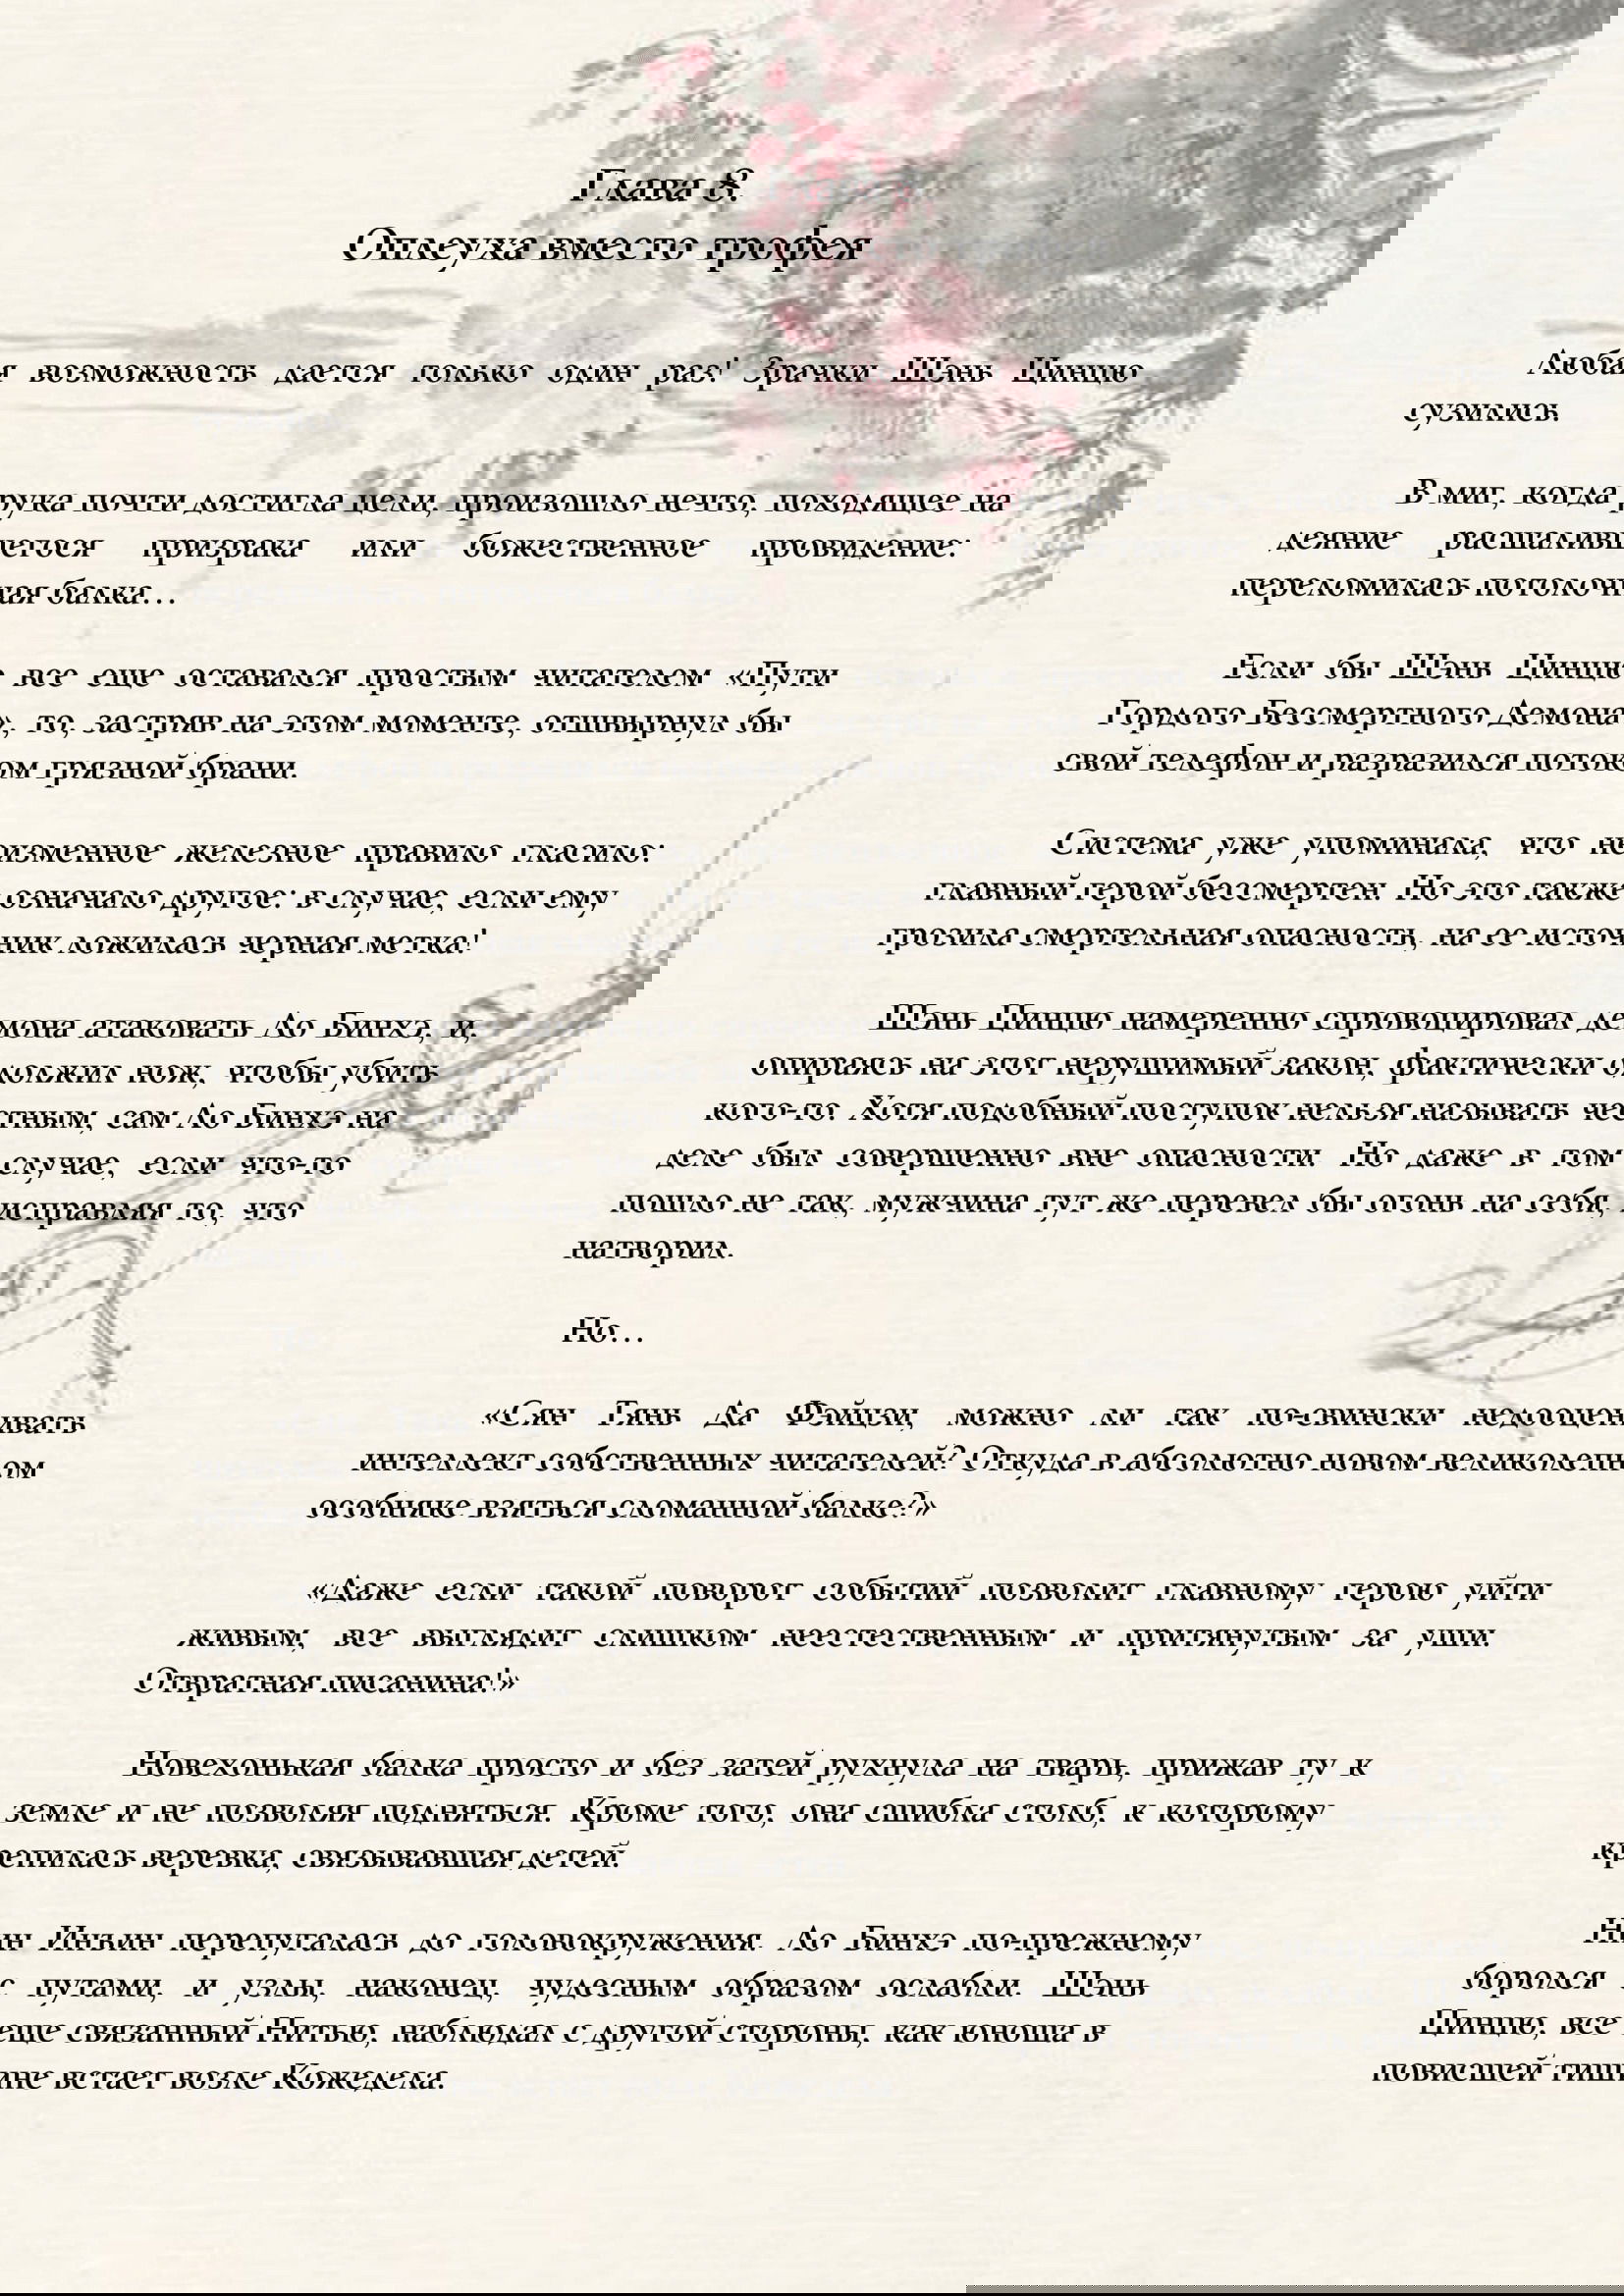 Глава 8.
Оплеуха вместо трофея
Любая возможность дается только один раз! Зрачки Шэнь Цинцю
сузились.
В миг, когда рука почти достигла цели, произошло нечто, походящее на
деяние расшалившегося призрака или божественное провидение:
переломилась потолочная балка…
Если бы Шэнь Цинцю все еще оставался простым читателем «Пути
Гордого Бессмертного Демона», то, застряв на этом моменте, отшвырнул бы
свой телефон и разразился потоком грязной брани.
Система уже упоминала, что неизменное железное правило гласило:
главный герой бессмертен. Но это также означало другое: в случае, если ему
грозила смертельная опасность, на ее источник ложилась черная метка!
Шэнь Цинцю намеренно спровоцировал демона атаковать Ло Бинхэ, и,
опираясь на этот нерушимый закон, фактически одолжил нож, чтобы убить
кого-то. Хотя подобный поступок нельзя называть честным, сам Ло Бинхэ на
деле был совершенно вне опасности. Но даже в том случае, если что-то
пошло не так, мужчина тут же перевел бы огонь на себя, исправляя то, что
натворил.
Но…
«Сян Тянь Да Фэйцзи, можно ли так по-свински недооценивать
интеллект собственных читателей? Откуда в абсолютно новом великолепном
особняке взяться сломанной балке?»
«Даже если такой поворот событий позволит главному герою уйти
живым, все выглядит слишком неестественным и притянутым за уши.
Отвратная писанина!»
Новехонькая балка просто и без затей рухнула на тварь, прижав ту к
земле и не позволяя подняться. Кроме того, она сшибла столб, к которому
крепилась веревка, связывавшая детей.
Нин Инъин перепугалась до головокружения. Ло Бинхэ по-прежнему
боролся с путами, и узлы, наконец, чудесным образом ослабли. Шэнь
Цинцю, все еще связанный Нитью, наблюдал с другой стороны, как юноша в
повисшей тишине встает возле Кожедела.